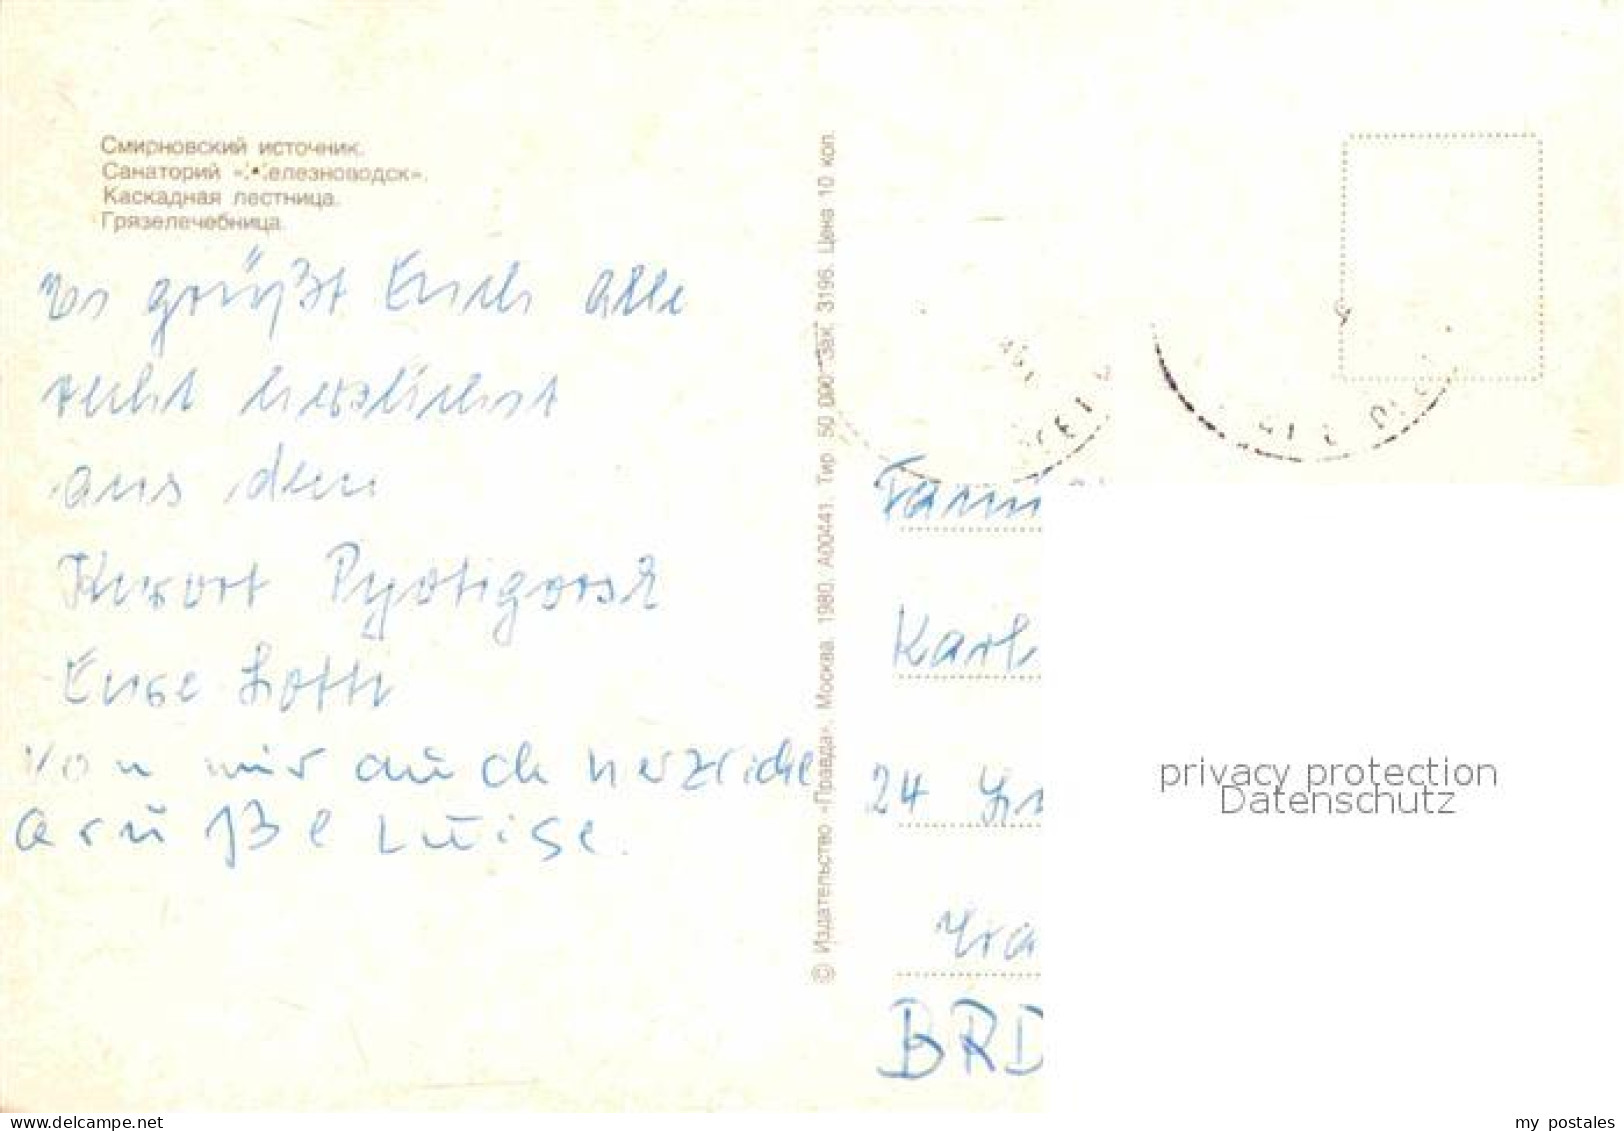 Смирновский источник.
Санаторий «Железноводск».
Каскадная лестница.
Грязелечебница.
Es grüßt Euch alle
recht herzlichst
aus dem
Kurort Pyatigorsk
Eure Lotte
Von mir auch herzliche
Grüße Luise.
© Издательство «Правда». Москва. 1980. А00441. Тир. 50 000. Зак. 3196. Цена 10 коп.
Fam
Karl
24
BRD
privacy protection
Datenschutz
my postales